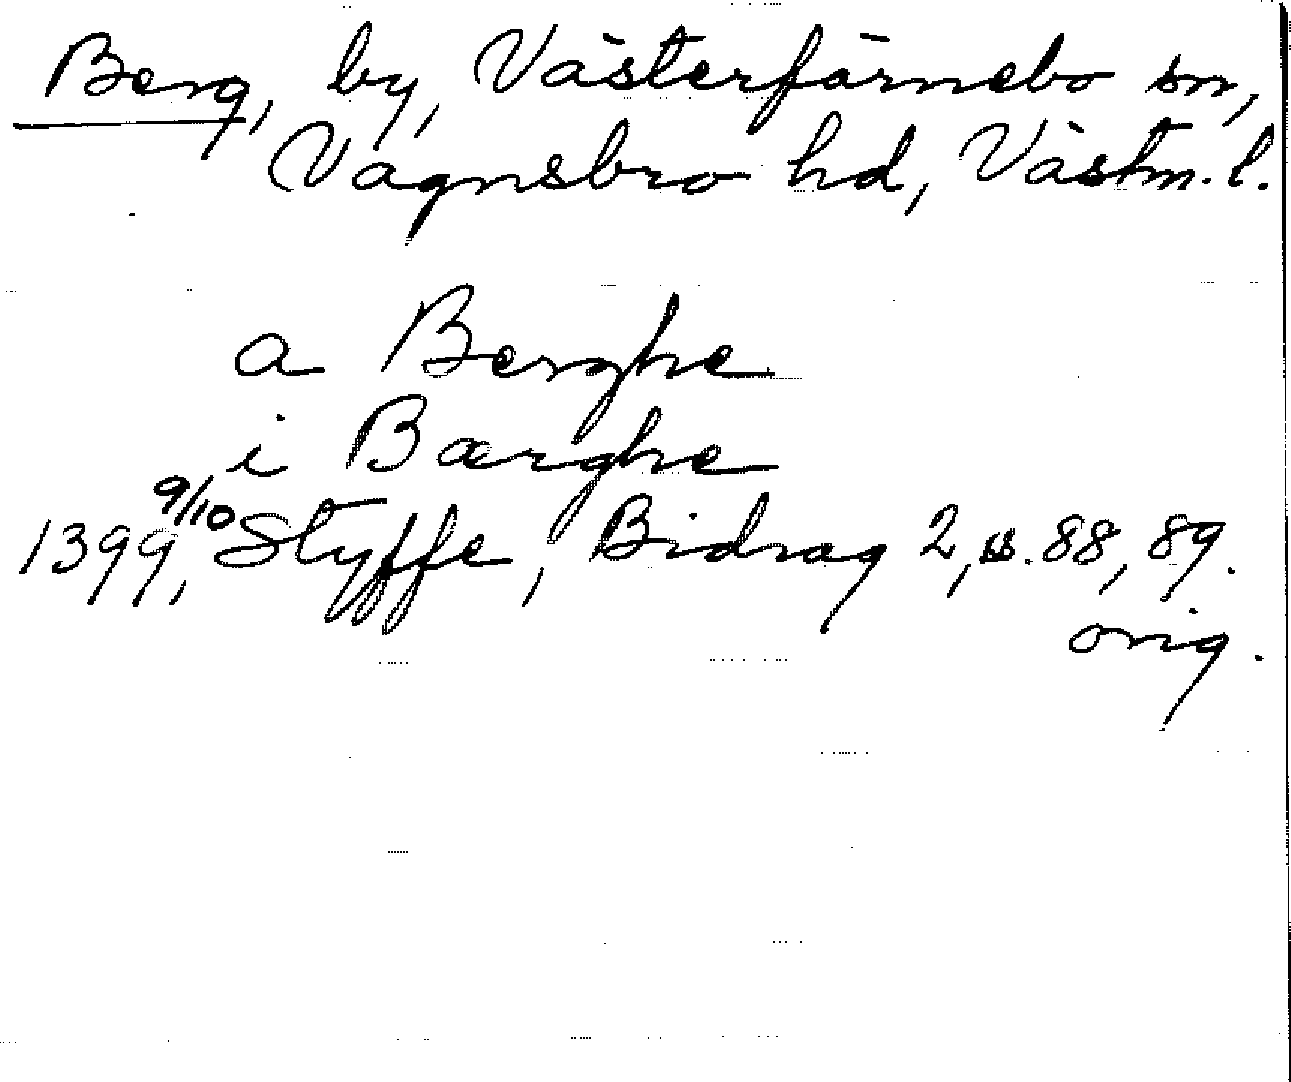 Berg, by, Västerfärnebo sn,
Vagnsbro hd, Västm. l.
a Berghe
i Bærghe
1399 9/10, Styffe, Bidrag 2, ss. 88, 89.
orig.